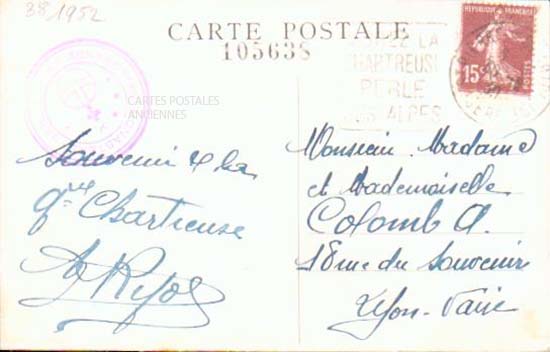 38/1952
CARTE POSTALE
105638
CARTES POSTALES
ANCIENNES
REPUBLIQUE FRANÇAISE
15c
POSTES
LA
HARTREUSE
PERLE
DES ALPES
Souvenir de la
Gde Chartreuse
Monsieur Madame
et Mademoiselle
Colomb A.
18 rue du Souvenir
Lyon-Vaise